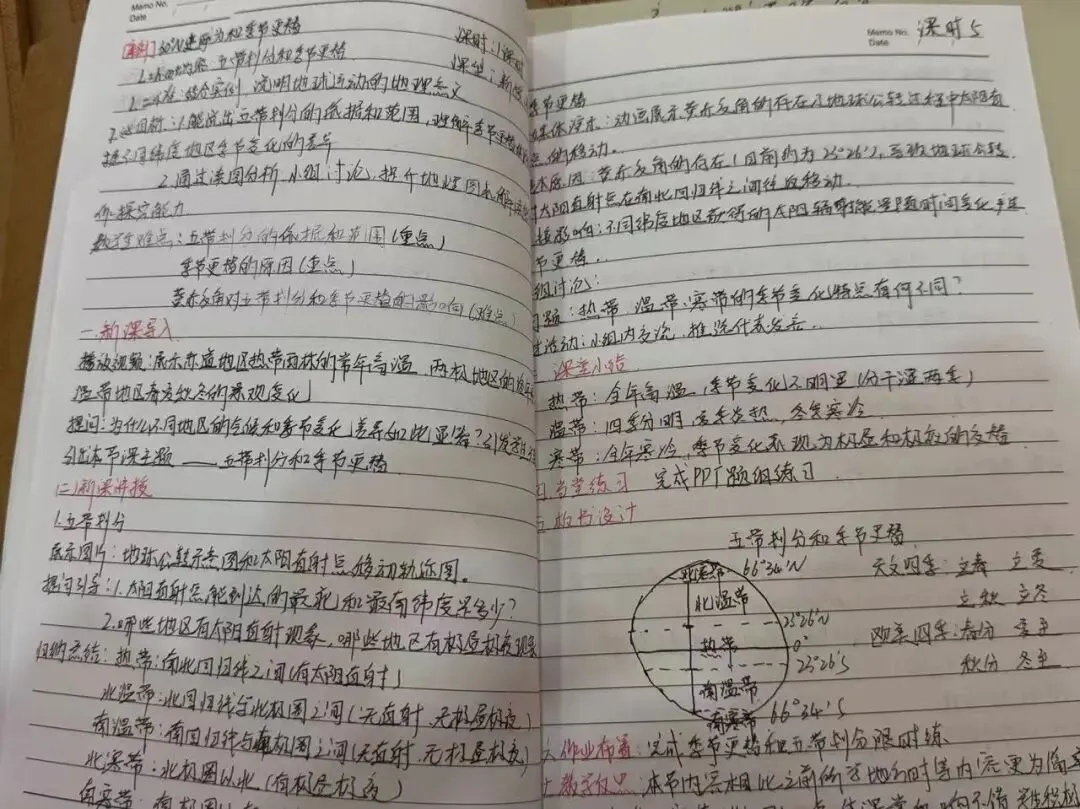 Memo No.
Date
五带划分和季节更替
课时：1课时
1.课标内容：五带划分和季节更替
课型：新授
结合实例，说明地球运动的地理意义
1.能说出五带划分的依据和范围，理解季节更替
不同纬度地区季节变化的差异
2.通过读图分析、小组讨论，提升地理图表解读
作探究能力
教学重难点：五带划分的依据和范围（重点）
季节更替的原因（重点）
黄赤交角对五带划分和季节更替的影响（难点）
一.新课导入
播放视频：展示赤道地区热带雨林的常年高温、两极地区的
温带地区春夏秋冬的景观变化
提问：为什么不同地区的气候和季节变化差异如此显著？引发学生
引出本节课主题——五带划分和季节更替
(二)新课讲授
1.五带划分
展示图片：地球公转示意图和太阳直射点移动轨迹图。
提问引导：1.太阳直射点能到达的最北和最南纬度是多少？
2.哪些地区有太阳直射现象，哪些地区有极昼极夜现象
归纳总结：热带：南北回归线之间（有太阳直射）
北温带：北回归线与北极圈之间（无直射、无极昼极夜）
南温带：南回归线与南极圈之间（无直射、无极昼极夜）
北寒带：北极圈以北（有极昼极夜）
南寒带：南极圈以
Memo No.
Date
课时5
季节更替
媒体演示：动画展示黄赤交角的存在及地球公转过程中太阳直
点的移动。
原因：黄赤交角的存在（目前约为23°26′），导致地球公转
太阳直射点在南北回归线之间往返移动
影响：不同纬度地区获得的太阳辐射能量随时间变化，季
节更替。
组讨论：
题：热带、温带、寒带的季节变化特点有何不同？
生活动：小组内交流，推选代表发言
课堂小结
热带：全年高温，季节变化不明显（分干湿两季）
温带：四季分明，夏季炎热，冬季寒冷
寒带：全年寒冷，季节变化表现为极昼和极夜的交替
当堂练习 完成PPT题组练习
板书设计
五带划分和季节更替
北寒带 66°34′N
北温带
23°26′N
热带 0°
23°26′S
南温带
南寒带 66°34′S
天文四季：立春 立夏
立秋 立冬
欧美四季：春分 夏至
秋分 冬至
作业布置：完成季节更替和五带划分限时练
教学反思：本节内容相比之前的